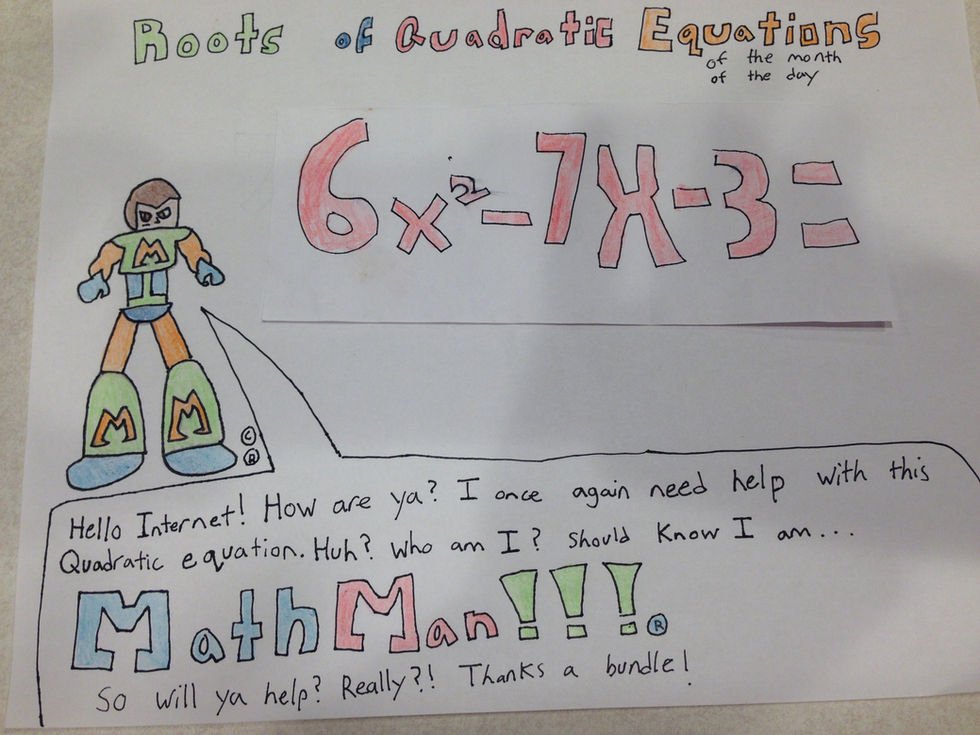 Roots of Quadratic Equations
of the month
of the day
6x²-7X-3=
M
M M
©
®
Hello Internet! How are ya? I once again need help with this
Quadratic equation. Huh? Who am I? Should Know I am...
MathMan!!!®
So will ya help? Really?! Thanks a bundle!